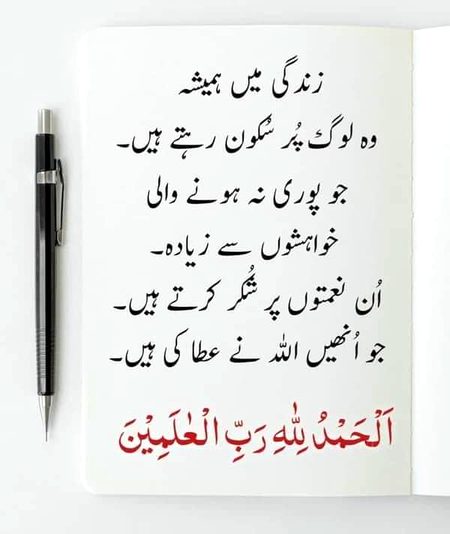 زندگی میں ہمیشہ
وہ لوگ پُر سُکون رہتے ہیں۔
جو پوری نہ ہونے والی
خواہشوں سے زیادہ۔
اُن نعمتوں پر شُکر کرتے ہیں۔
جو اُنھیں اللہ نے عطا کی ہیں۔
اَلْحَمْدُ لِلّٰهِ رَبِّ الْعٰلَمِيْنَ